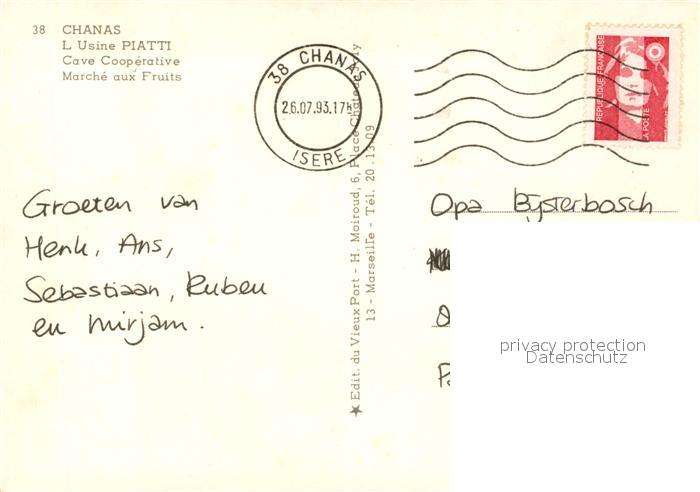 38 CHANAS
L Usine PIATTI
Cave Coopérative
Marché aux Fruits
38 CHANAS
26.07.93.17H
ISERE
REPUBLIQUE FRANÇAISE
LA POSTE
Groeten van
Henk, Ans,
Sebastiaan, Ruben
en Mirjam.
★ Edit. du Vieux Port - H. Moiroud, 6, Place
13 - Marseille - Tél. 20.13.09
Opa Bijsterbosch
privacy protection
Datenschutz